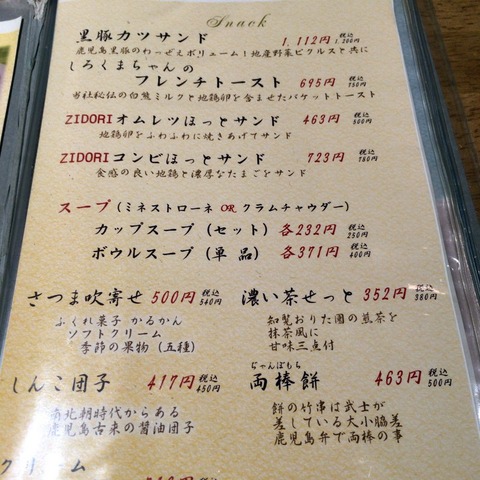 Snack
黒豚カツサンド 1,112円 税込1,200円
鹿児島黒豚のわっぜえボリューム!地産野菜ピクルスと共に
しろくまちゃんの
フレンチトースト 695円 税込750円
当社秘伝の白熊ミルクと地鶏卵を含ませたバケットトースト
ZIDORIオムレツほっとサンド 463円 税込500円
地鶏卵をふわふわに焼きあげてサンド
ZIDORIコンビほっとサンド 723円 税込780円
食感の良い地鶏と濃厚なたまごをサンド
スープ(ミネストローネ OR クラムチャウダー)
カップスープ(セット) 各232円 税込250円
ボウルスープ(単品) 各371円 税込400円
さつま吹寄せ 500円 税込540円
ふくれ菓子 かるかん
ソフトクリーム
季節の果物(五種)
濃い茶せっと 352円 税込380円
知覧おりた園の煎茶を
抹茶風に
甘味三点付
しんこ団子 417円 税込450円
南北朝時代からある
鹿児島古来の醤油団子
ぢゃんぼもち
両棒餅 463円 税込500円
餅の竹串は武士が
差している大小脇差
鹿児島弁で両棒の事
クリーム